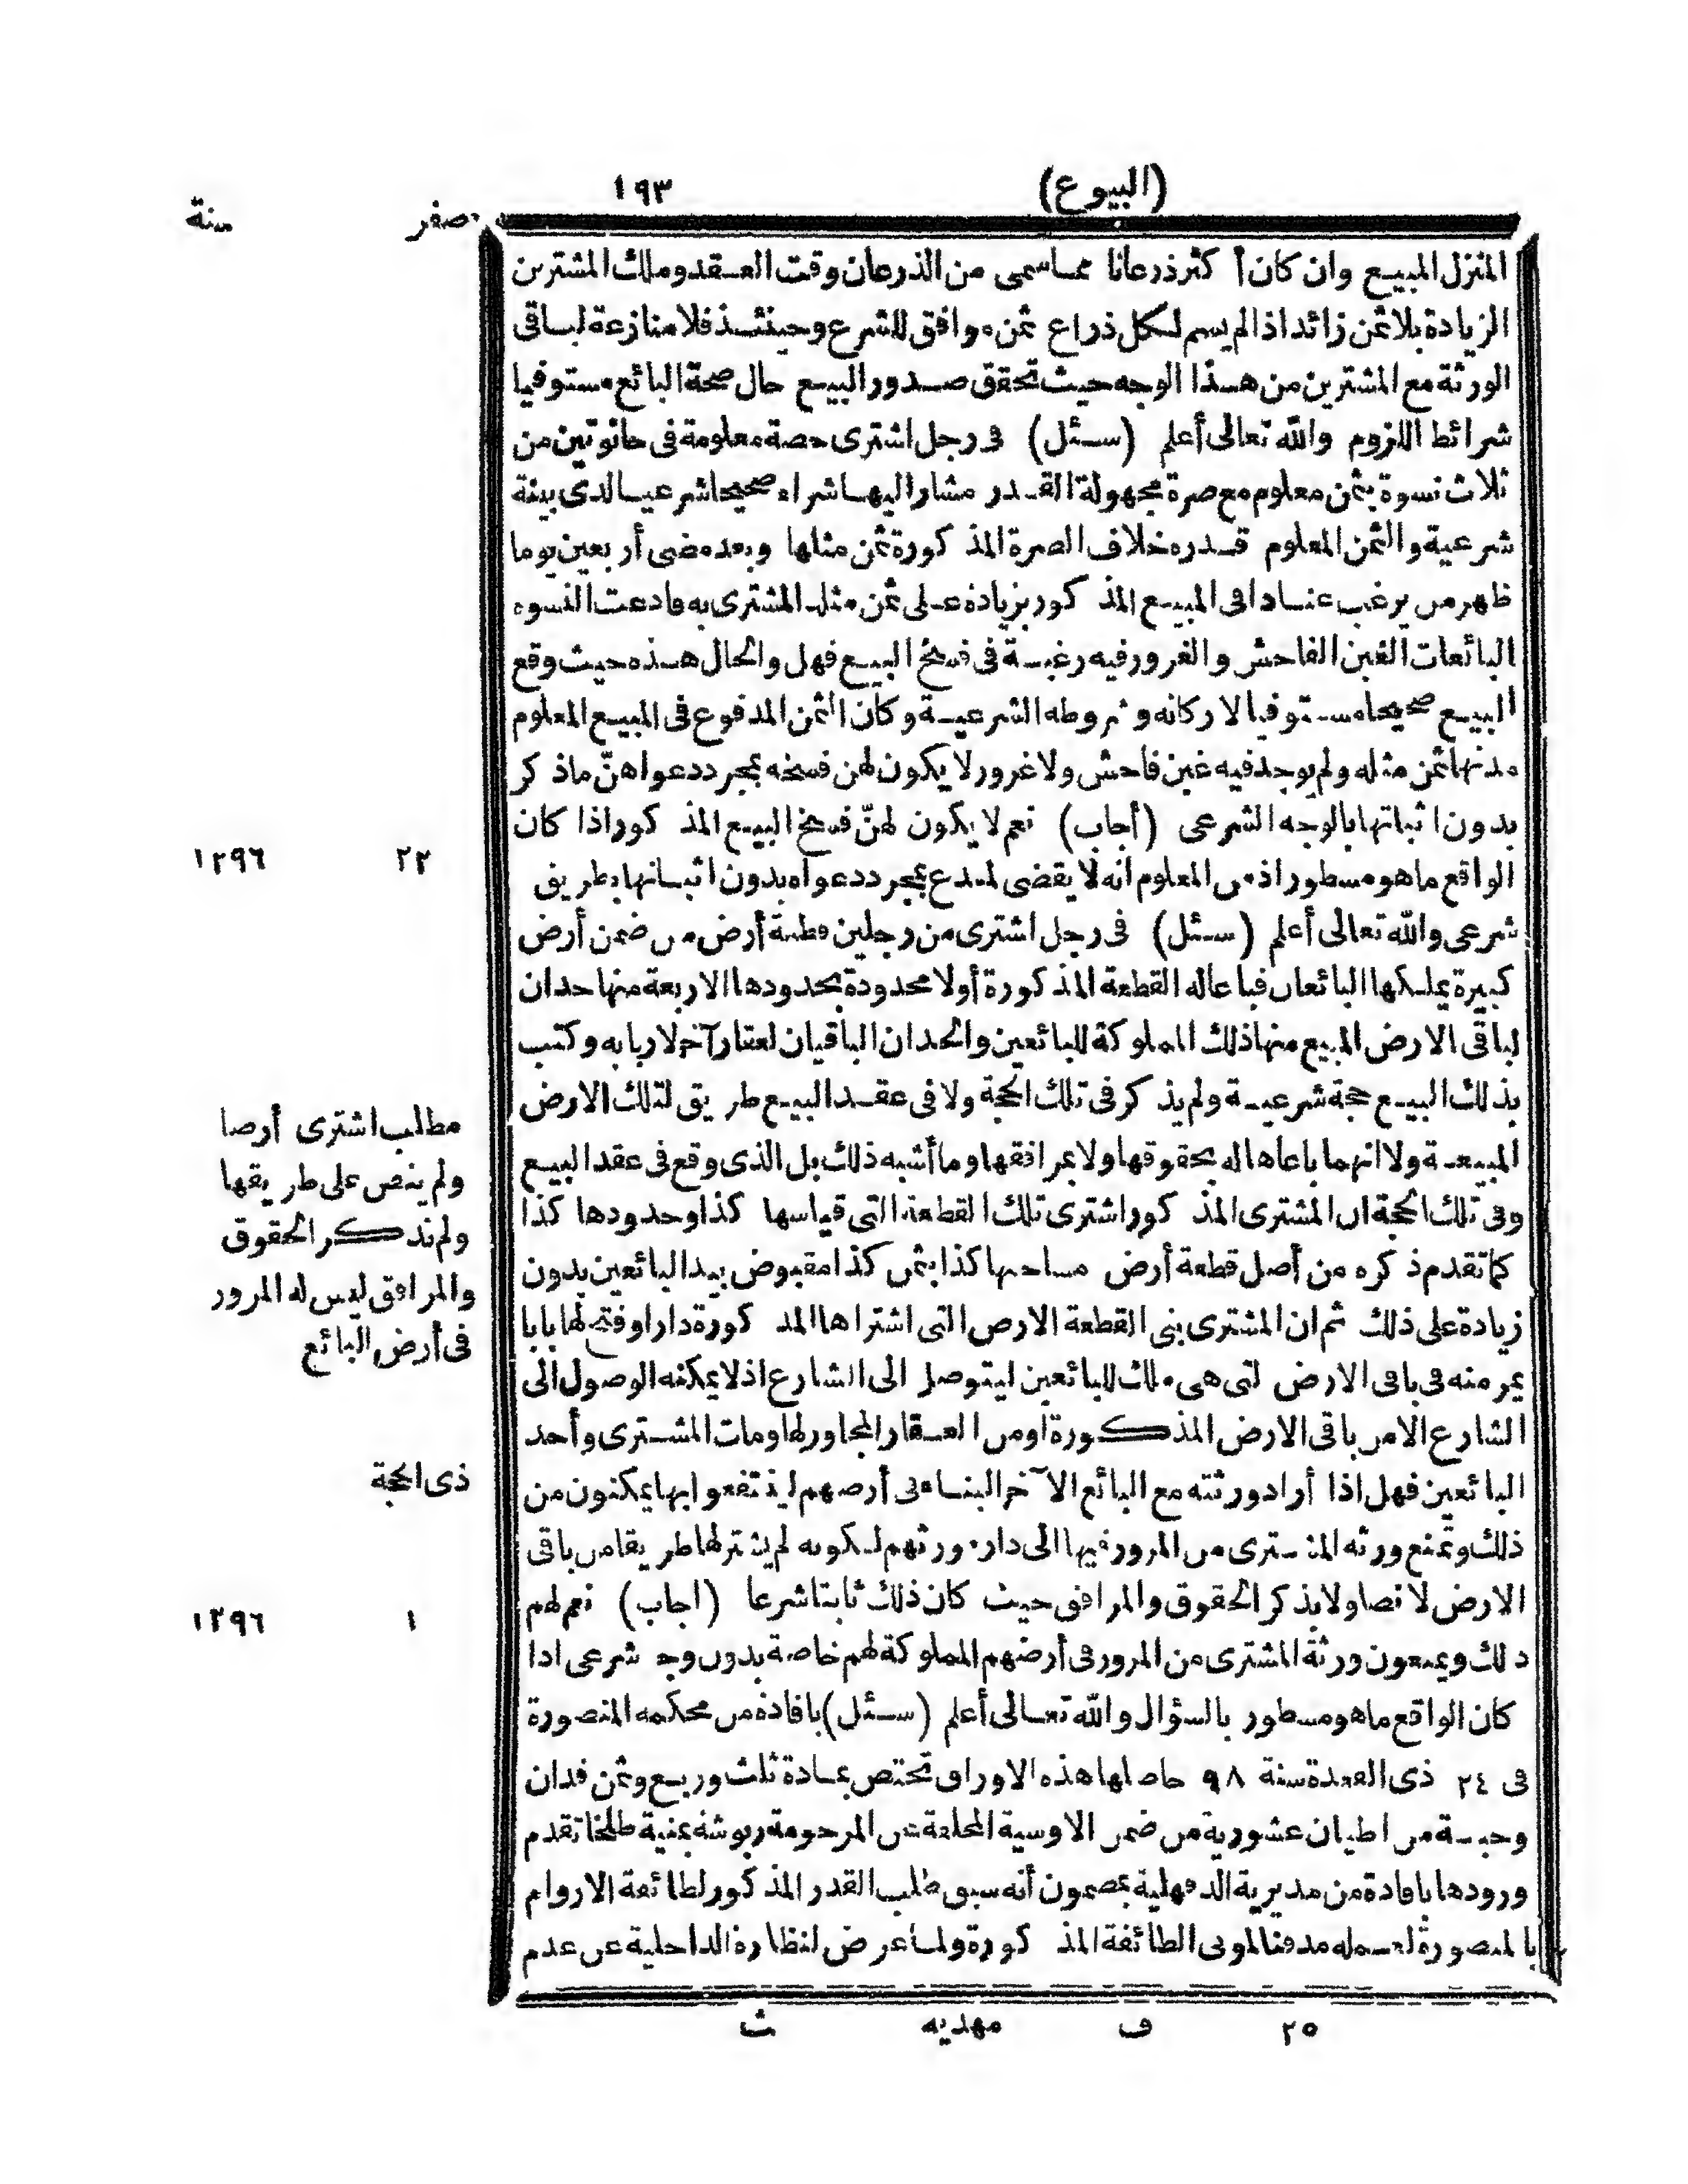 (البيوع) ١٩٣
صفر سنة
المنزل المبيع وان كان أكثر ذرعانا مما سمى من الذرعان وقت العقد وملك المشترين
الزيادة بلا ثمن زائد اذا لم يسم لكل ذراع ثمن موافق للشرع وحينئذ فلا منازعة لباقى
الورثة مع المشترين من هذا الوجه حيث تحقق صدور البيع حال صحة البائع مستوفيا
شرائط اللزوم والله تعالى أعلم (سئل) فى رجل اشترى حصة معلومة فى حانوتين من
ثلاث نسوة بثمن معلوم مع صرة مجهولة القدر مشارا اليها شراء صحيحا شرعيا لدى بينة
شرعية والثمن المعلوم قدره خلاف الصرة المذكورة ثمن مثلها وبعد مضى أربعين يوما
ظهر من يرغب عنادا فى المبيع المذكور بزيادة على ثمن مثل المشترى به فادعت النسوه
البائعات الغبن الفاحش والغرور فيه رغبة فى فسخ البيع فهل والحال هذه حيث وقع
البيع صحيحا مستوفيا لاركانه وشروطه الشرعية وكان الثمن المدفوع فى المبيع المعلوم
مدتها ثمن مثله ولم يوجد فيه غبن فاحش ولا غرور لا يكون لهن فسخه بمجرد دعواهنّ ماذكر
بدون اثباتها بالوجه الشرعى (أجاب) نعم لا يكون لهنّ فسخ البيع المذكور اذا كان
الواقع ما هو مسطور اذ من المعلوم انه لا يقضى لمدع بمجرد دعواه بدون اثباتها بطريق
٢٢ ١٢٩٦
شرعى والله تعالى أعلم (سئل) فى رجل اشترى من رجلين قطعة أرض من ضمن أرض
كبيرة يملكها البائعان فباعا له القطعة المذكورة أولا محدودة بحدودها الاربعة منها حدان
لباقى الارض المبيع منها ذلك المملوكة للبائعين والحدان الباقيان لعقار آخر لاربابه وكتب
بذلك البيع حجة شرعية ولم يذكر فى تلك الحجة ولا فى عقد البيع طريق لتلك الارض
المبيعة ولا انهما باعاها له بحقوقها ولا بمرافقها وما أشبه ذلك بل الذى وقع فى عقد البيع
وفى تلك الحجة ان المشترى المذكور اشترى تلك القطعة التى قياسها كذا وحدودها كذا
كما تقدم ذكره من أصل قطعة أرض مساحتها كذا بثمن كذا مقبوض بيد البائعين بدون
زيادة على ذلك ثم ان المشترى بنى القطعة الارض التى اشتراها المذكورة دارا وفتح لها بابا
يمر منه فى باقى الارض التى هى ملك للبائعين ليتوصل الى الشارع اذ لا يمكنه الوصول الى
الشارع الا من باقى الارض المذكورة او من العقار المجاور لها ومات المشترى وأحد
البائعين فهل اذا أراد ورثته مع البائع الآخر البناء فى أرضهم لينتفعوا بها يمكنون من
ذلك وتمنع ورثه المشترى من المرور فيها الى دار مورثهم لكونه لم يشتر لها طريقا من باقى
الارض لا نصا ولا بذكر الحقوق والمرافق حيث كان ذلك ثابتا شرعا (اجاب) نعم لهم
ذلك ويمنعون ورثة المشترى من المرور فى أرضهم المملوكة لهم خاصة بدون وجه شرعى اذا
كان الواقع ما هو مسطور بالسؤال والله تعالى أعلم (سئل) بافادة من محكمه المنصورة
مطلب اشترى أرضا
ولم ينص على طريقها
ولم تذكر الحقوق
والمرافق ليس له المرور
فى أرض البائع
ذى الحجة
١ ١٢٩٦
فى ٢٤ ذى القعدة سنة ٩٨ حاصلها هذه الاوراق تختص بمادة ثلث وربع وثمن فدان
وحبة من اطيان عشورية من ضمن الاوسية المخلفة عن المرحومة بمنية طلخا تقدم
ورودها بافادة من مديرية الدقهلية بمضمون أنه سبق طلب القدر المذكور لطائفة الاروام
بالمنصورة لعمله مدفنا لموتى الطائفة المذكورة ولما عرض لنظارة الداخلية عن عدم
٢٥ ف مهديه ث